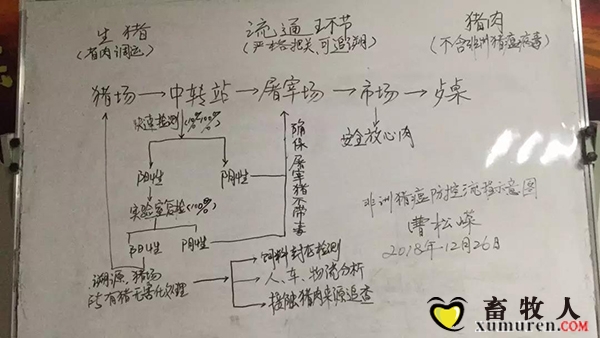 生猪 流通环节 猪肉
(省内调运) (严格把关,可追溯) (不含非洲猪瘟病毒)
猪场→中转站→屠宰场→市场→桌
快速检测(100%) 安全放心肉
阴性 阳性
实验室复检(100%)
阳性 阴性
确保屠宰猪不带毒
溯源,猪场
所有猪无害化处理
饲料封存检测
人、车、物流分析
接触猪肉来源追查
非洲猪瘟防控流程示意图
曹松嵘
2018年12月26日
畜牧人
xumuren.com